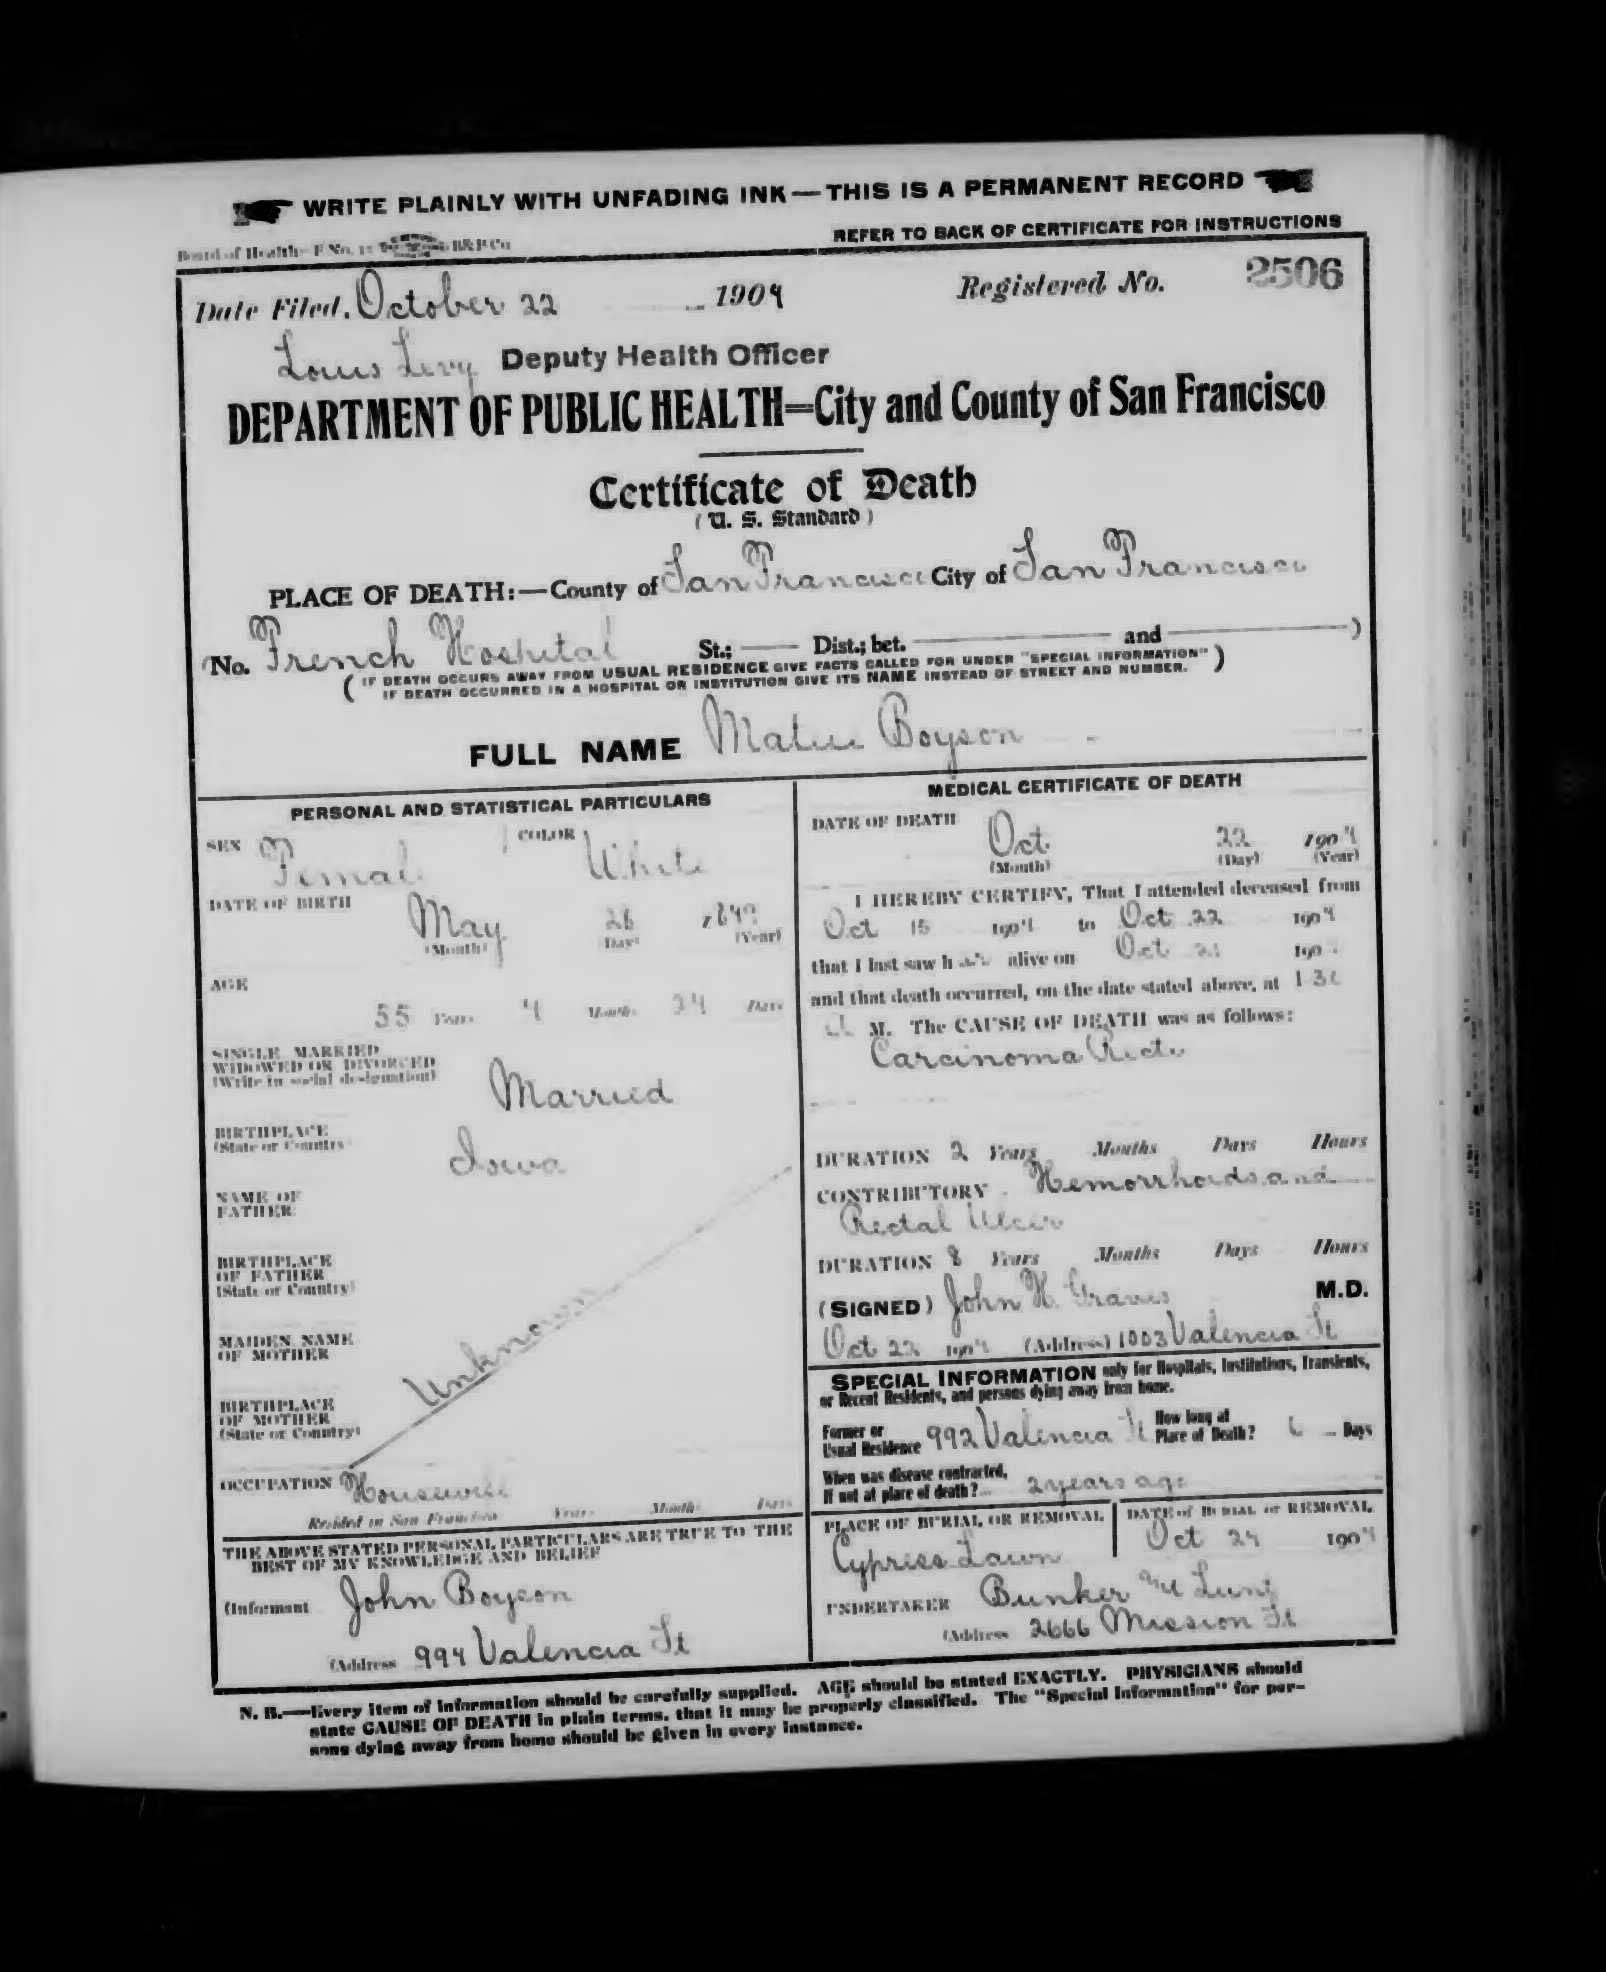 WRITE PLAINLY WITH UNFADING INK—THIS IS A PERMANENT RECORD
Board of Health—F No. B&P Co
REFER TO BACK OF CERTIFICATE FOR INSTRUCTIONS
Date Filed, October 22 1904 Registered No. 2506
Louis Levy Deputy Health Officer
DEPARTMENT OF PUBLIC HEALTH=City and County of San Francisco
Certificate of Death
(U. S. Standard)
PLACE OF DEATH:—County of San Francisco City of San Francisco
(No. French Hospital St.; — Dist.; bet. — and —)
(IF DEATH OCCURS AWAY FROM USUAL RESIDENCE GIVE FACTS CALLED FOR UNDER "SPECIAL INFORMATION")
IF DEATH OCCURRED IN A HOSPITAL OR INSTITUTION GIVE ITS NAME INSTEAD OF STREET AND NUMBER.
FULL NAME Boyson
PERSONAL AND STATISTICAL PARTICULARS
SEX Female COLOR White
DATE OF BIRTH May 28 1849
(Month) (Day) (Year)
AGE
55 Years 4 Months 24 Days
SINGLE MARRIED
WIDOWED OR DIVORCED
(Write in social designation)
Married
BIRTHPLACE
(State or Country)
Iowa
NAME OF
FATHER
BIRTHPLACE
OF FATHER
(State or Country)
MAIDEN NAME
OF MOTHER
Unknown
BIRTHPLACE
OF MOTHER
(State or Country)
OCCUPATION Housewife
Resided in San Francisco Years Months Days
THE ABOVE STATED PERSONAL PARTICULARS ARE TRUE TO THE
BEST OF MY KNOWLEDGE AND BELIEF
(Informant John Boyson
(Address 994 Valencia St
MEDICAL CERTIFICATE OF DEATH
DATE OF DEATH Oct 22 1904
(Month) (Day) (Year)
I HEREBY CERTIFY, That I attended deceased from
Oct 15 1904 to Oct 22 1904
that I last saw her alive on Oct 21 190
and that death occurred, on the date stated above, at 1.30
A M. The CAUSE OF DEATH was as follows:
Carcinoma Recti
DURATION 2 Years Months Days Hours
CONTRIBUTORY Hemorrhoids and
Rectal Ulcer
DURATION 8 Years Months Days Hours
(SIGNED) John H. Graves M.D.
Oct 22 1904 (Address) 1003 Valencia St
SPECIAL INFORMATION only for Hospitals, Institutions, Transients,
or Recent Residents, and persons dying away from home.
Former or
Usual Residence 992 Valencia St How long at
Place of Death? 6 Days
When was disease contracted,
If not at place of death? 2 years ago
PLACE OF BURIAL OR REMOVAL
Cypress Lawn
DATE of BURIAL or REMOVAL
Oct 24 1904
UNDERTAKER Bunker
(Address 2666 Mission St
N. B.—Every item of information should be carefully supplied. AGE should be stated EXACTLY. PHYSICIANS should
state CAUSE OF DEATH in plain terms, that it may be properly classified. The "Special Information" for per-
sons dying away from home should be given in every instance.